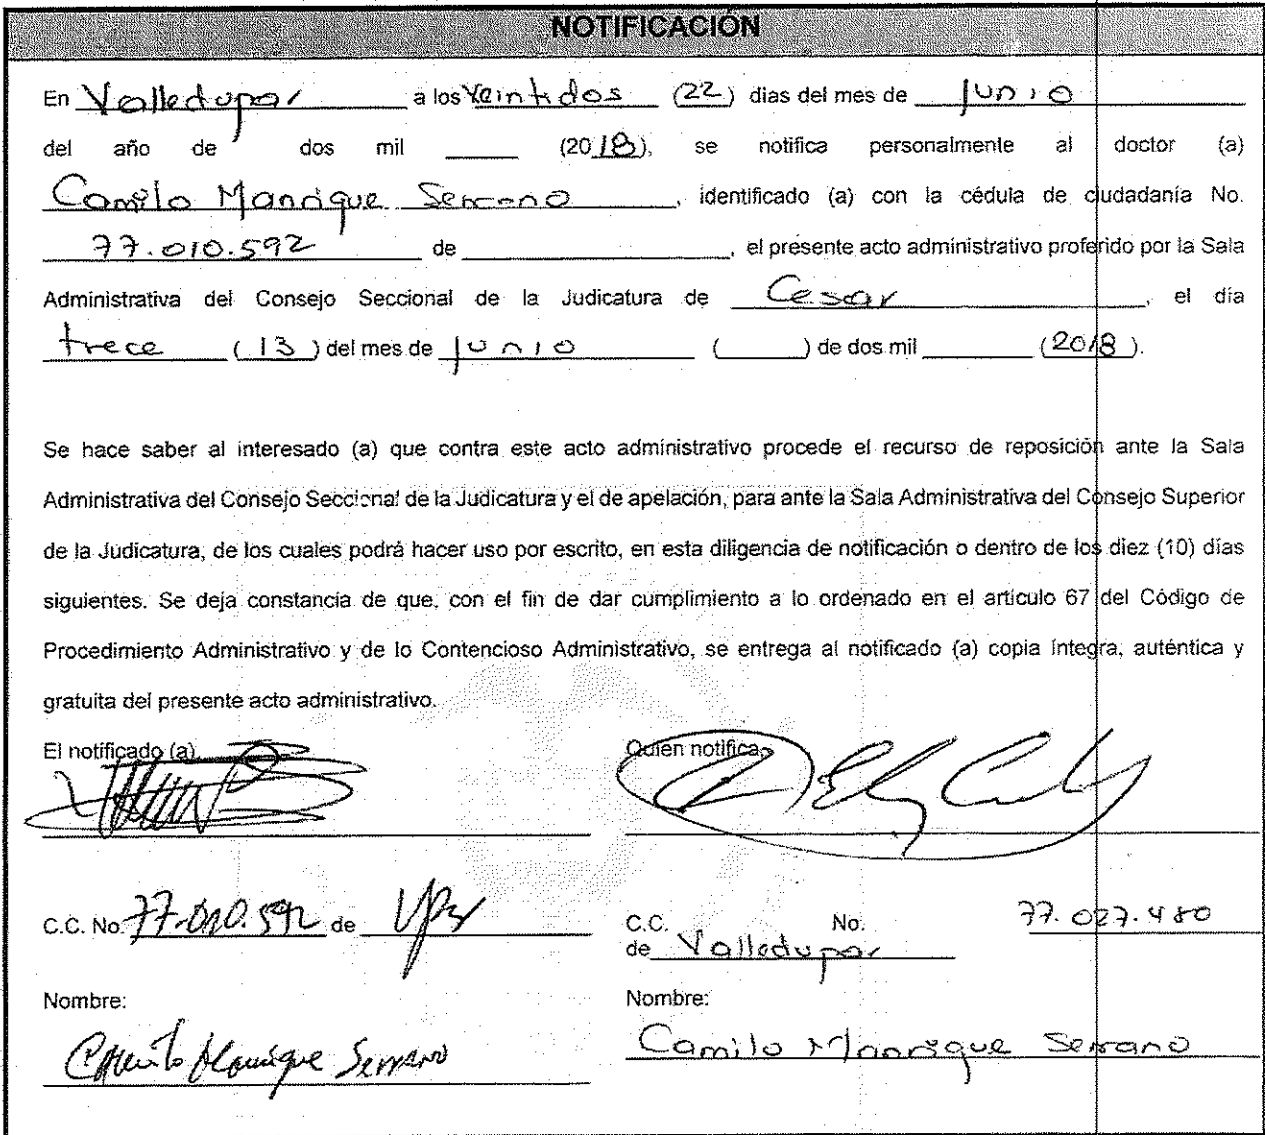 NOTIFICACIÓN
En Valledupar a los Veintidos (22) dias del mes de Junio
del año de dos mil (2018), se notifica personalmente al doctor (a)
Camilo Manrique Serrano, identificado (a) con la cédula de ciudadanía No.
77.010.592 de , el presente acto administrativo proferido por la Sala
Administrativa del Consejo Seccional de la Judicatura de Cesar, el día
trece (13) del mes de Junio ( ) de dos mil (2018).
Se hace saber al interesado (a) que contra este acto administrativo procede el recurso de reposición ante la Sala
Administrativa del Consejo Seccional de la Judicatura y el de apelación, para ante la Sala Administrativa del Consejo Superior
de la Judicatura, de los cuales podrá hacer uso por escrito, en esta diligencia de notificación o dentro de los diez (10) días
siguientes. Se deja constancia de que, con el fin de dar cumplimiento a lo ordenado en el artículo 67 del Código de
Procedimiento Administrativo y de lo Contencioso Administrativo, se entrega al notificado (a) copia íntegra, auténtica y
gratuita del presente acto administrativo.
El notificado (a) Quien notifica
C.C. No. 77.010.592 de Vpar C.C. No. 77.027.480
de Valledupar
Nombre: Nombre:
Camilo Manrique Serrano Camilo Manrique Serrano